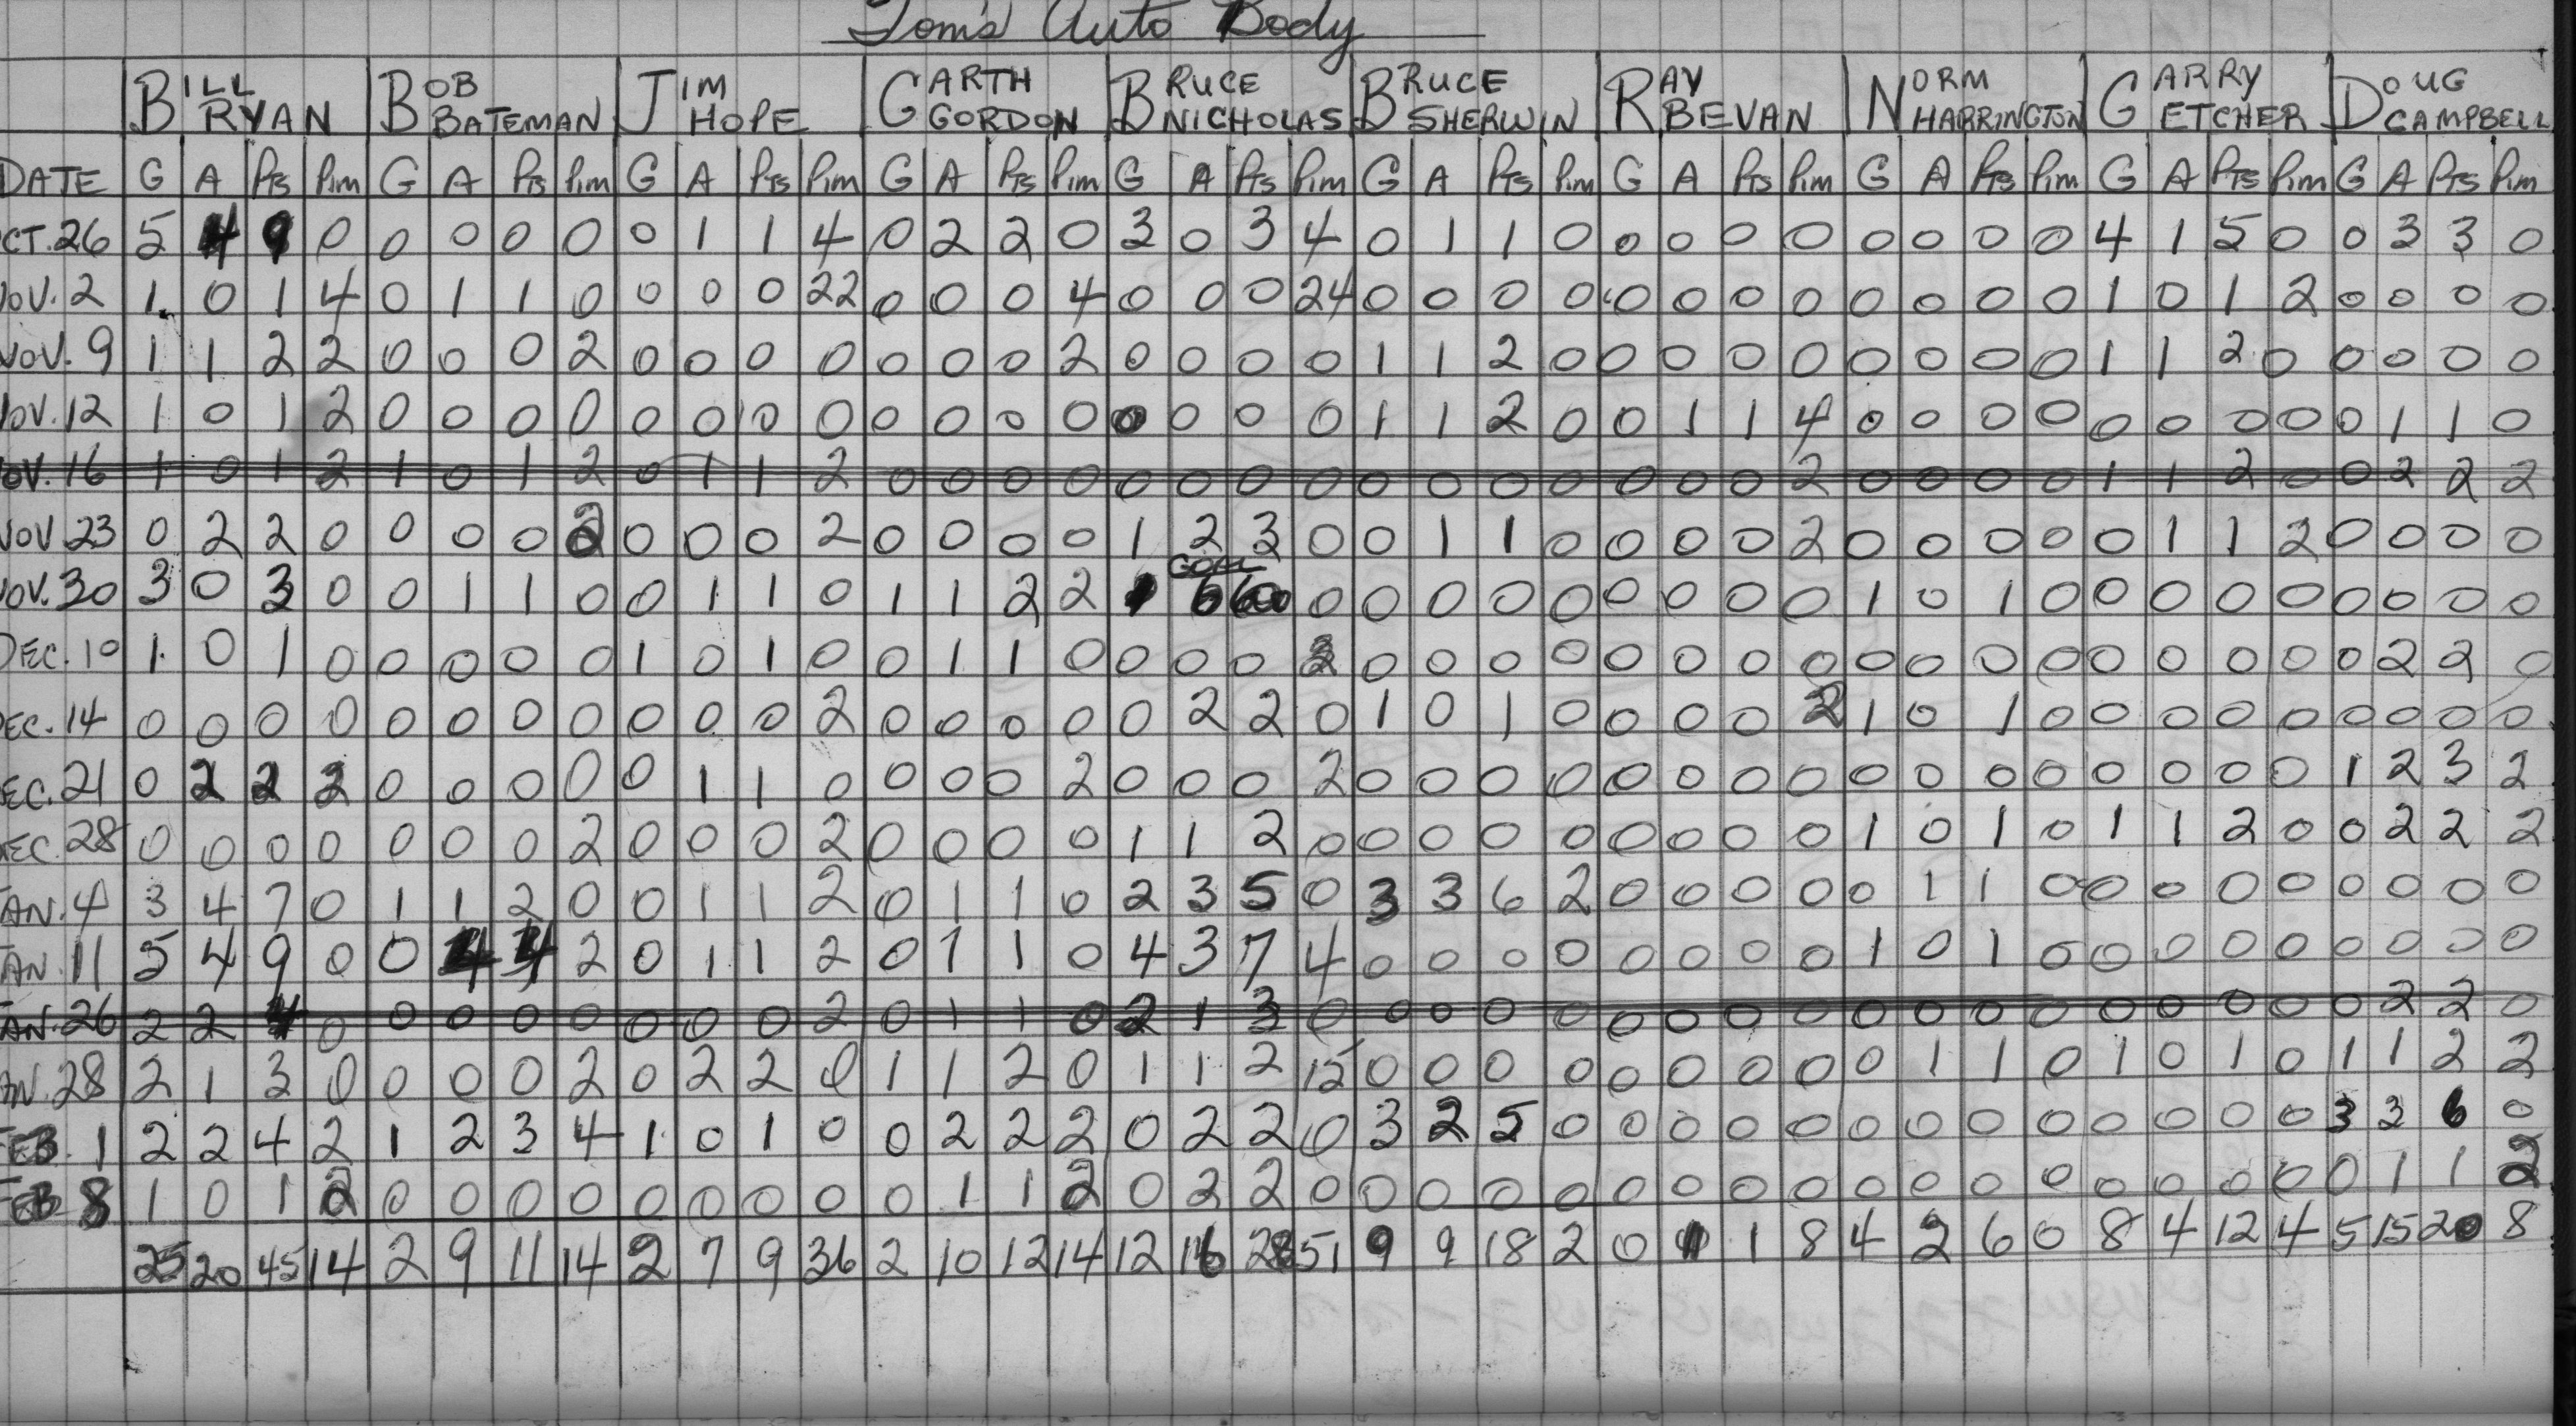 Tom's Auto Body
BILL RYAN BOB BATEMAN JIM HOPE GARTH GORDON BRUCE NICHOLAS BRUCE SHERWIN RAY BEVAN NORM HARRINGTON GARRY ETCHER DOUG CAMPBELL
DATE G A Pts Pim G A Pts Pim G A Pts Pim G A Pts Pim G A Pts Pim G A Pts Pim G A Pts Pim G A Pts Pim G A Pts Pim G A Pts Pim
CT. 26 5 4 9 0 0 0 0 0 0 1 1 4 0 2 2 0 3 0 3 4 0 1 1 0 0 0 0 0 0 0 0 0 4 1 5 0 0 3 3 0
OV. 2 1 0 1 4 0 1 1 0 0 0 0 22 0 0 0 4 0 0 0 24 0 0 0 0 0 0 0 0 0 0 0 0 1 0 1 2 0 0 0 0
NOV. 9 1 1 2 2 0 0 0 2 0 0 0 0 0 0 0 2 0 0 0 0 1 1 2 0 0 0 0 0 0 0 0 0 1 1 2 0 0 0 0 0
OV. 12 1 0 1 2 0 0 0 0 0 0 0 0 0 0 0 0 0 0 0 0 1 1 2 0 0 1 1 4 0 0 0 0 0 0 0 0 0 1 1 0
OV. 16 1 0 1 2 1 0 1 2 0 1 1 2 0 0 0 0 0 0 0 0 0 0 0 0 0 0 0 2 0 0 0 0 1 1 2 0 0 2 2 2
NOV 23 0 2 2 0 0 0 0 2 0 0 0 2 0 0 0 0 1 2 3 0 0 1 1 0 0 0 0 2 0 0 0 0 0 1 1 2 0 0 0 0
OV. 30 3 0 3 0 0 1 1 0 0 1 1 0 1 1 2 2 GOAL 0 0 0 0 0 0 0 0 0 1 0 1 0 0 0 0 0 0 0 0 0
DEC. 10 1 0 1 0 0 0 0 0 1 0 1 0 0 1 1 0 0 0 0 2 0 0 0 0 0 0 0 0 0 0 0 0 0 0 0 0 0 2 2 0
EC. 14 0 0 0 0 0 0 0 0 0 0 0 2 0 0 0 0 0 2 2 0 1 0 1 0 0 0 0 2 1 0 1 0 0 0 0 0 0 0 0 0
EC. 21 0 2 2 2 0 0 0 0 0 1 1 0 0 0 0 2 0 0 0 2 0 0 0 0 0 0 0 0 0 0 0 0 0 0 0 0 1 2 3 2
EC. 28 0 0 0 0 0 0 0 2 0 0 0 2 0 0 0 0 1 1 2 0 0 0 0 0 0 0 0 0 1 0 1 0 1 1 2 0 0 2 2 2
AN. 4 3 4 7 0 1 1 2 0 0 1 1 2 0 1 1 0 2 3 5 0 3 3 6 2 0 0 0 0 0 1 1 0 0 0 0 0 0 0 0 0
AN. 11 5 4 9 0 0 4 4 2 0 1 1 2 0 1 1 0 4 3 7 4 0 0 0 0 0 0 0 0 1 0 1 0 0 0 0 0 0 0 0 0
AN. 26 2 2 4 0 0 0 0 0 0 0 0 2 0 1 1 0 2 1 3 0 0 0 0 0 0 0 0 0 0 0 0 0 0 0 0 0 0 2 2 0
AN. 28 2 1 3 0 0 0 0 2 0 2 2 0 1 1 2 0 1 1 2 15 0 0 0 0 0 0 0 0 0 1 1 0 1 0 1 0 1 1 2 2
FEB. 1 2 2 4 2 1 2 3 4 1 0 1 0 0 2 2 2 0 2 2 0 3 2 5 0 0 0 0 0 0 0 0 0 0 0 0 0 3 3 6 0
FEB 8 1 0 1 2 0 0 0 0 0 0 0 0 0 1 1 2 0 2 2 0 0 0 0 0 0 0 0 0 0 0 0 0 0 0 0 0 0 1 1 2
25 20 45 14 2 9 11 14 2 7 9 36 2 10 12 14 12 16 28 51 9 9 18 2 0 1 1 8 4 2 6 0 8 4 12 4 5 15 20 8